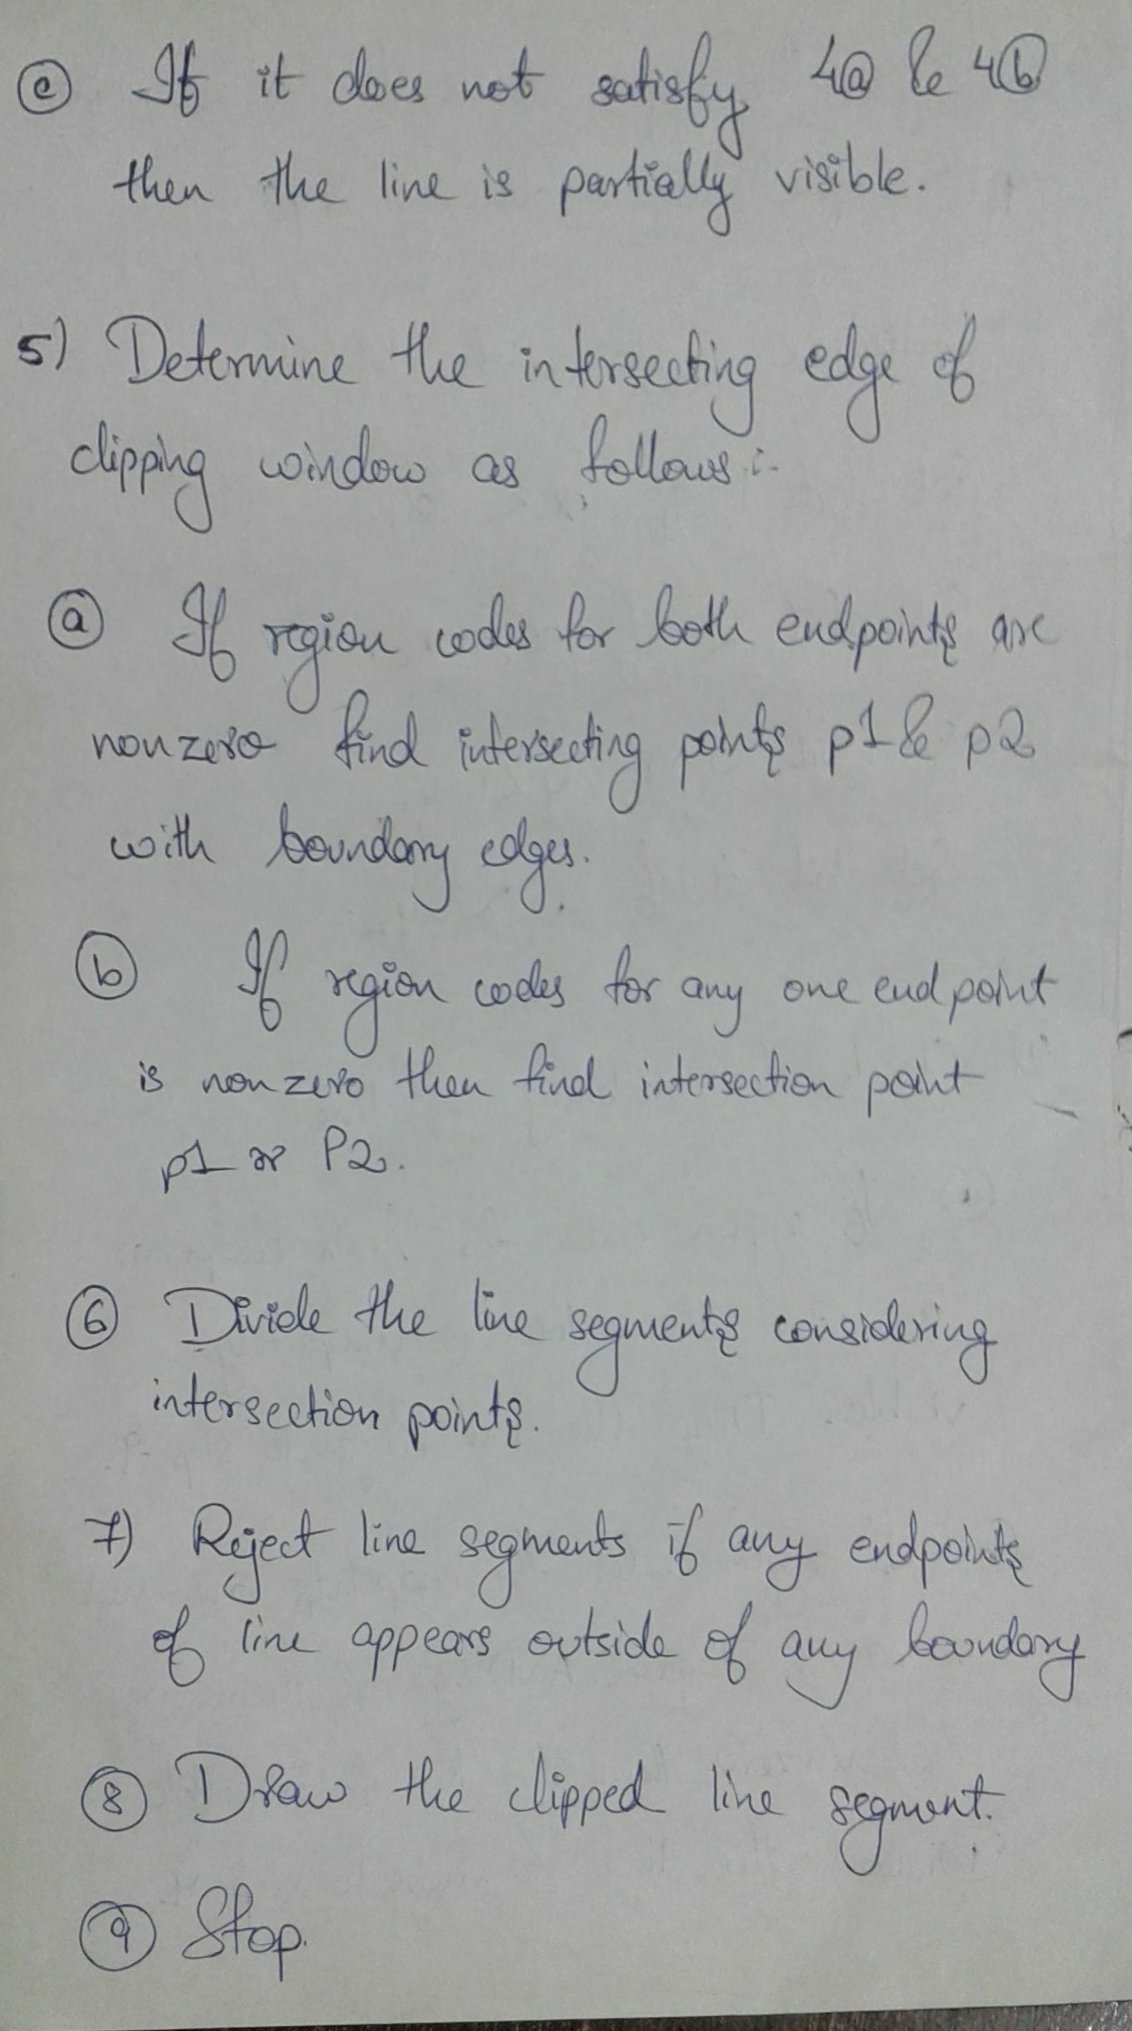 ⓒ If it does not satisfy 4ⓐ & 4ⓑ
then the line is partially visible.
5) Determine the intersecting edge of
clipping window as follows :-
ⓐ If region codes for both endpoints are
nonzero find intersecting points p1 & p2
with boundary edges.
ⓑ If region codes for any one end point
is nonzero then find intersection point
p1 or P2.
⑥ Divide the line segments considering
intersection points.
7) Reject line segments if any endpoints
of line appears outside of any boundary
⑧ Draw the clipped line segment.
⑨ Stop.